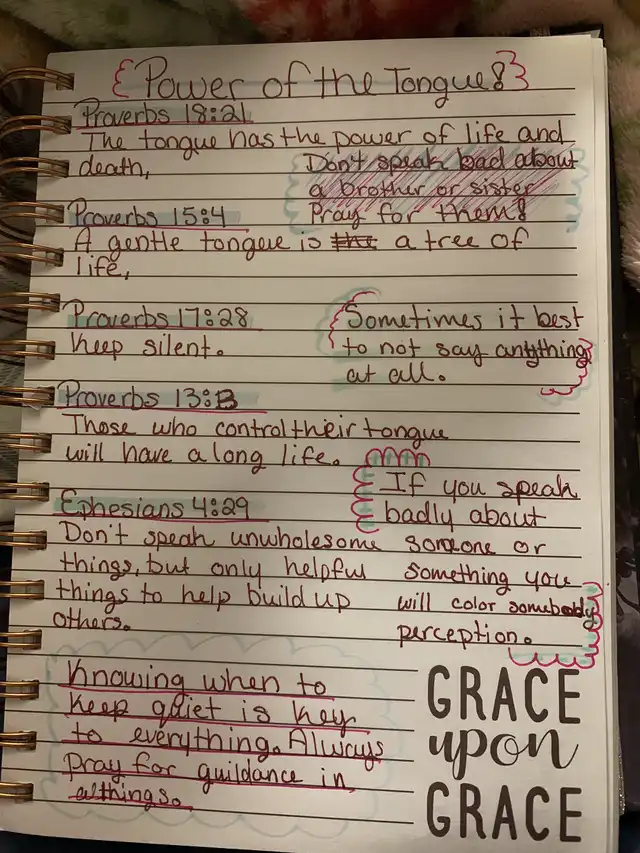 Power of the Tongue!
Proverbs 18:21
The tongue has the power of life and
death,
Don't speak bad about
a brother or sister
Pray for them!
Proverbs 15:4
A gentle tongue is the a tree of
life,
Proverbs 17:28
Keep silent.
Sometimes it best
to not say anything
at all.
Proverbs 13:3
Those who control their tongue
will have a long life.
If you speak
badly about
someone or
something you
will color somebody
perception.
Ephesians 4:29
Don't speak unwholesome
things, but only helpful
things to help build up
others.
Knowing when to
keep quiet is key
to everything. Always
pray for guildance in
althings.
GRACE
upon
GRACE